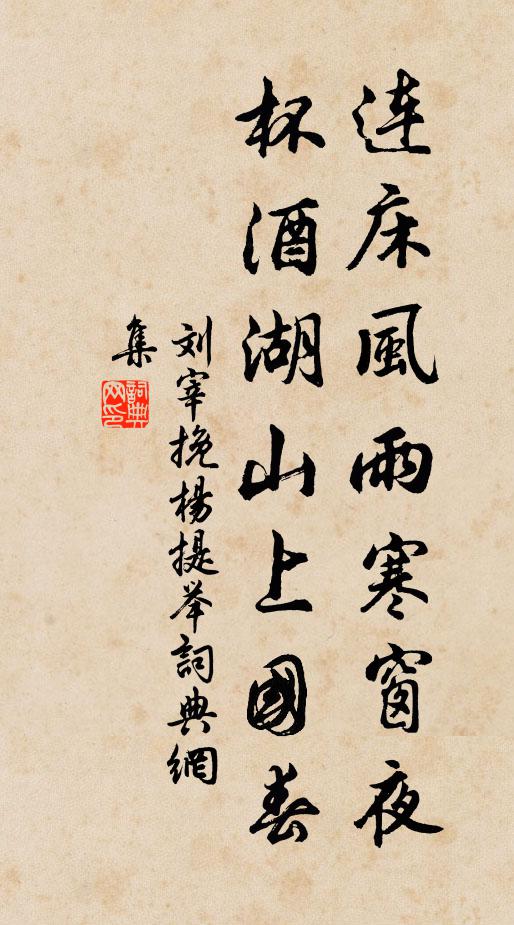 連床風雨寒窗夜
杯酒湖山上國春
刘宰挽楊提举詞典網
集
詞典网印